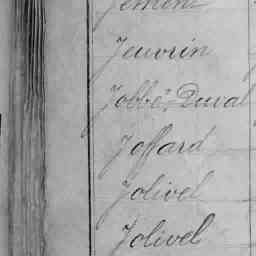 Jeuvrin
Jobbé-Duval
Joffard
Jolivel
Jolivel